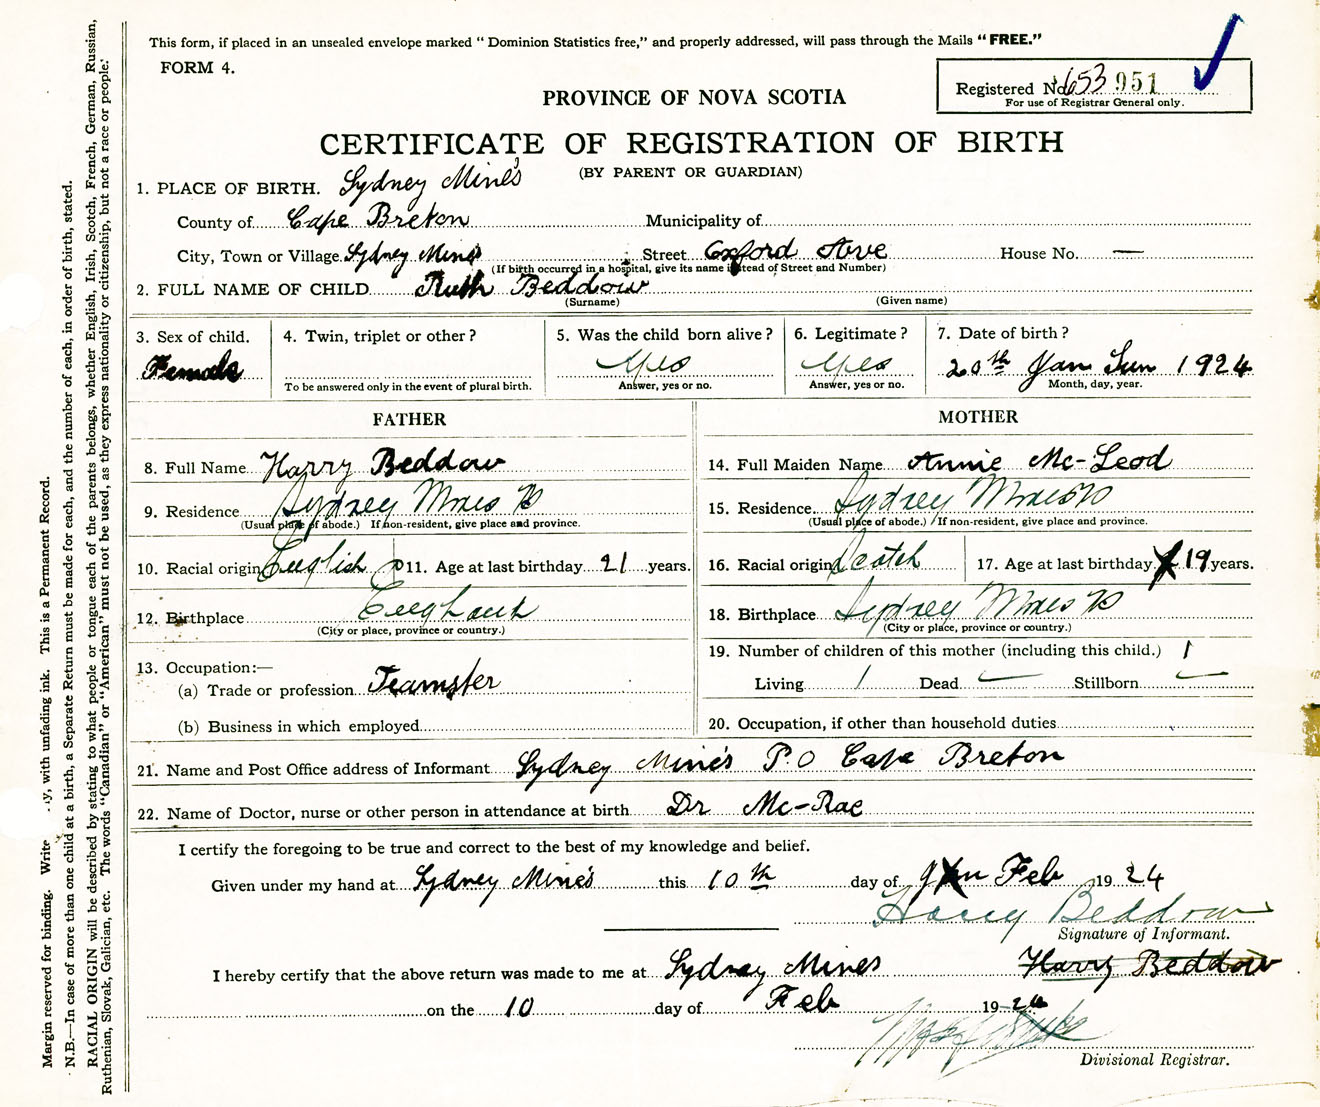 This form, if placed in an unsealed envelope marked "Dominion Statistics free," and properly addressed, will pass through the Mails "FREE."
FORM 4.
Registered No. 653 951
For use of Registrar General only.
PROVINCE OF NOVA SCOTIA
CERTIFICATE OF REGISTRATION OF BIRTH
(BY PARENT OR GUARDIAN)
1. PLACE OF BIRTH. Sydney Mine's
County of Cape Breton Municipality of
City, Town or Village Sydney Mines Street Oxford Ave House No. —
(If birth occurred in a hospital, give its name instead of Street and Number)
2. FULL NAME OF CHILD Ruth Beddow
(Surname) (Given name)
3. Sex of child. 4. Twin, triplet or other? 5. Was the child born alive? 6. Legitimate? 7. Date of birth?
Female Yes Yes 20th Jan Sun 1924
To be answered only in the event of plural birth. Answer, yes or no. Answer, yes or no. Month, day, year.
FATHER
8. Full Name Harry Beddow
9. Residence Sydney Mines
(Usual place of abode.) If non-resident, give place and province.
10. Racial origin English 11. Age at last birthday 21 years.
12. Birthplace England
(City or place, province or country.)
13. Occupation:—
(a) Trade or profession Teamster
(b) Business in which employed
MOTHER
14. Full Maiden Name Annie Mc-Leod
15. Residence Sydney Mines
(Usual place of abode.) If non-resident, give place and province.
16. Racial origin Scotch 17. Age at last birthday 19 years.
18. Birthplace Sydney Mines
(City or place, province or country.)
19. Number of children of this mother (including this child.) 1
Living 1 Dead — Stillborn —
20. Occupation, if other than household duties
21. Name and Post Office address of Informant Sydney Mine's P.O Cape Breton
22. Name of Doctor, nurse or other person in attendance at birth Dr Mc-Rae
I certify the foregoing to be true and correct to the best of my knowledge and belief.
Given under my hand at Sydney Mine's this 10th day of Jan Feb 1924
Harry Beddow
Signature of Informant.
I hereby certify that the above return was made to me at Sydney Mines Harry Beddow
on the 10 day of Feb 19-24
Divisional Registrar.
Margin reserved for binding. Write with unfading ink. This is a Permanent Record.
N.B.—In case of more than one child at a birth, a Separate Return must be made for each, and the number of each, in order of birth, stated.
RACIAL ORIGIN will be described by stating to what people or tongue each of the parents belongs, whether English, Irish, Scotch, French, German, Russian,
Ruthenian, Slovak, Galician, etc. The words "Canadian" or "American" must not be used, as they express nationality or citizenship, but not a race or people.